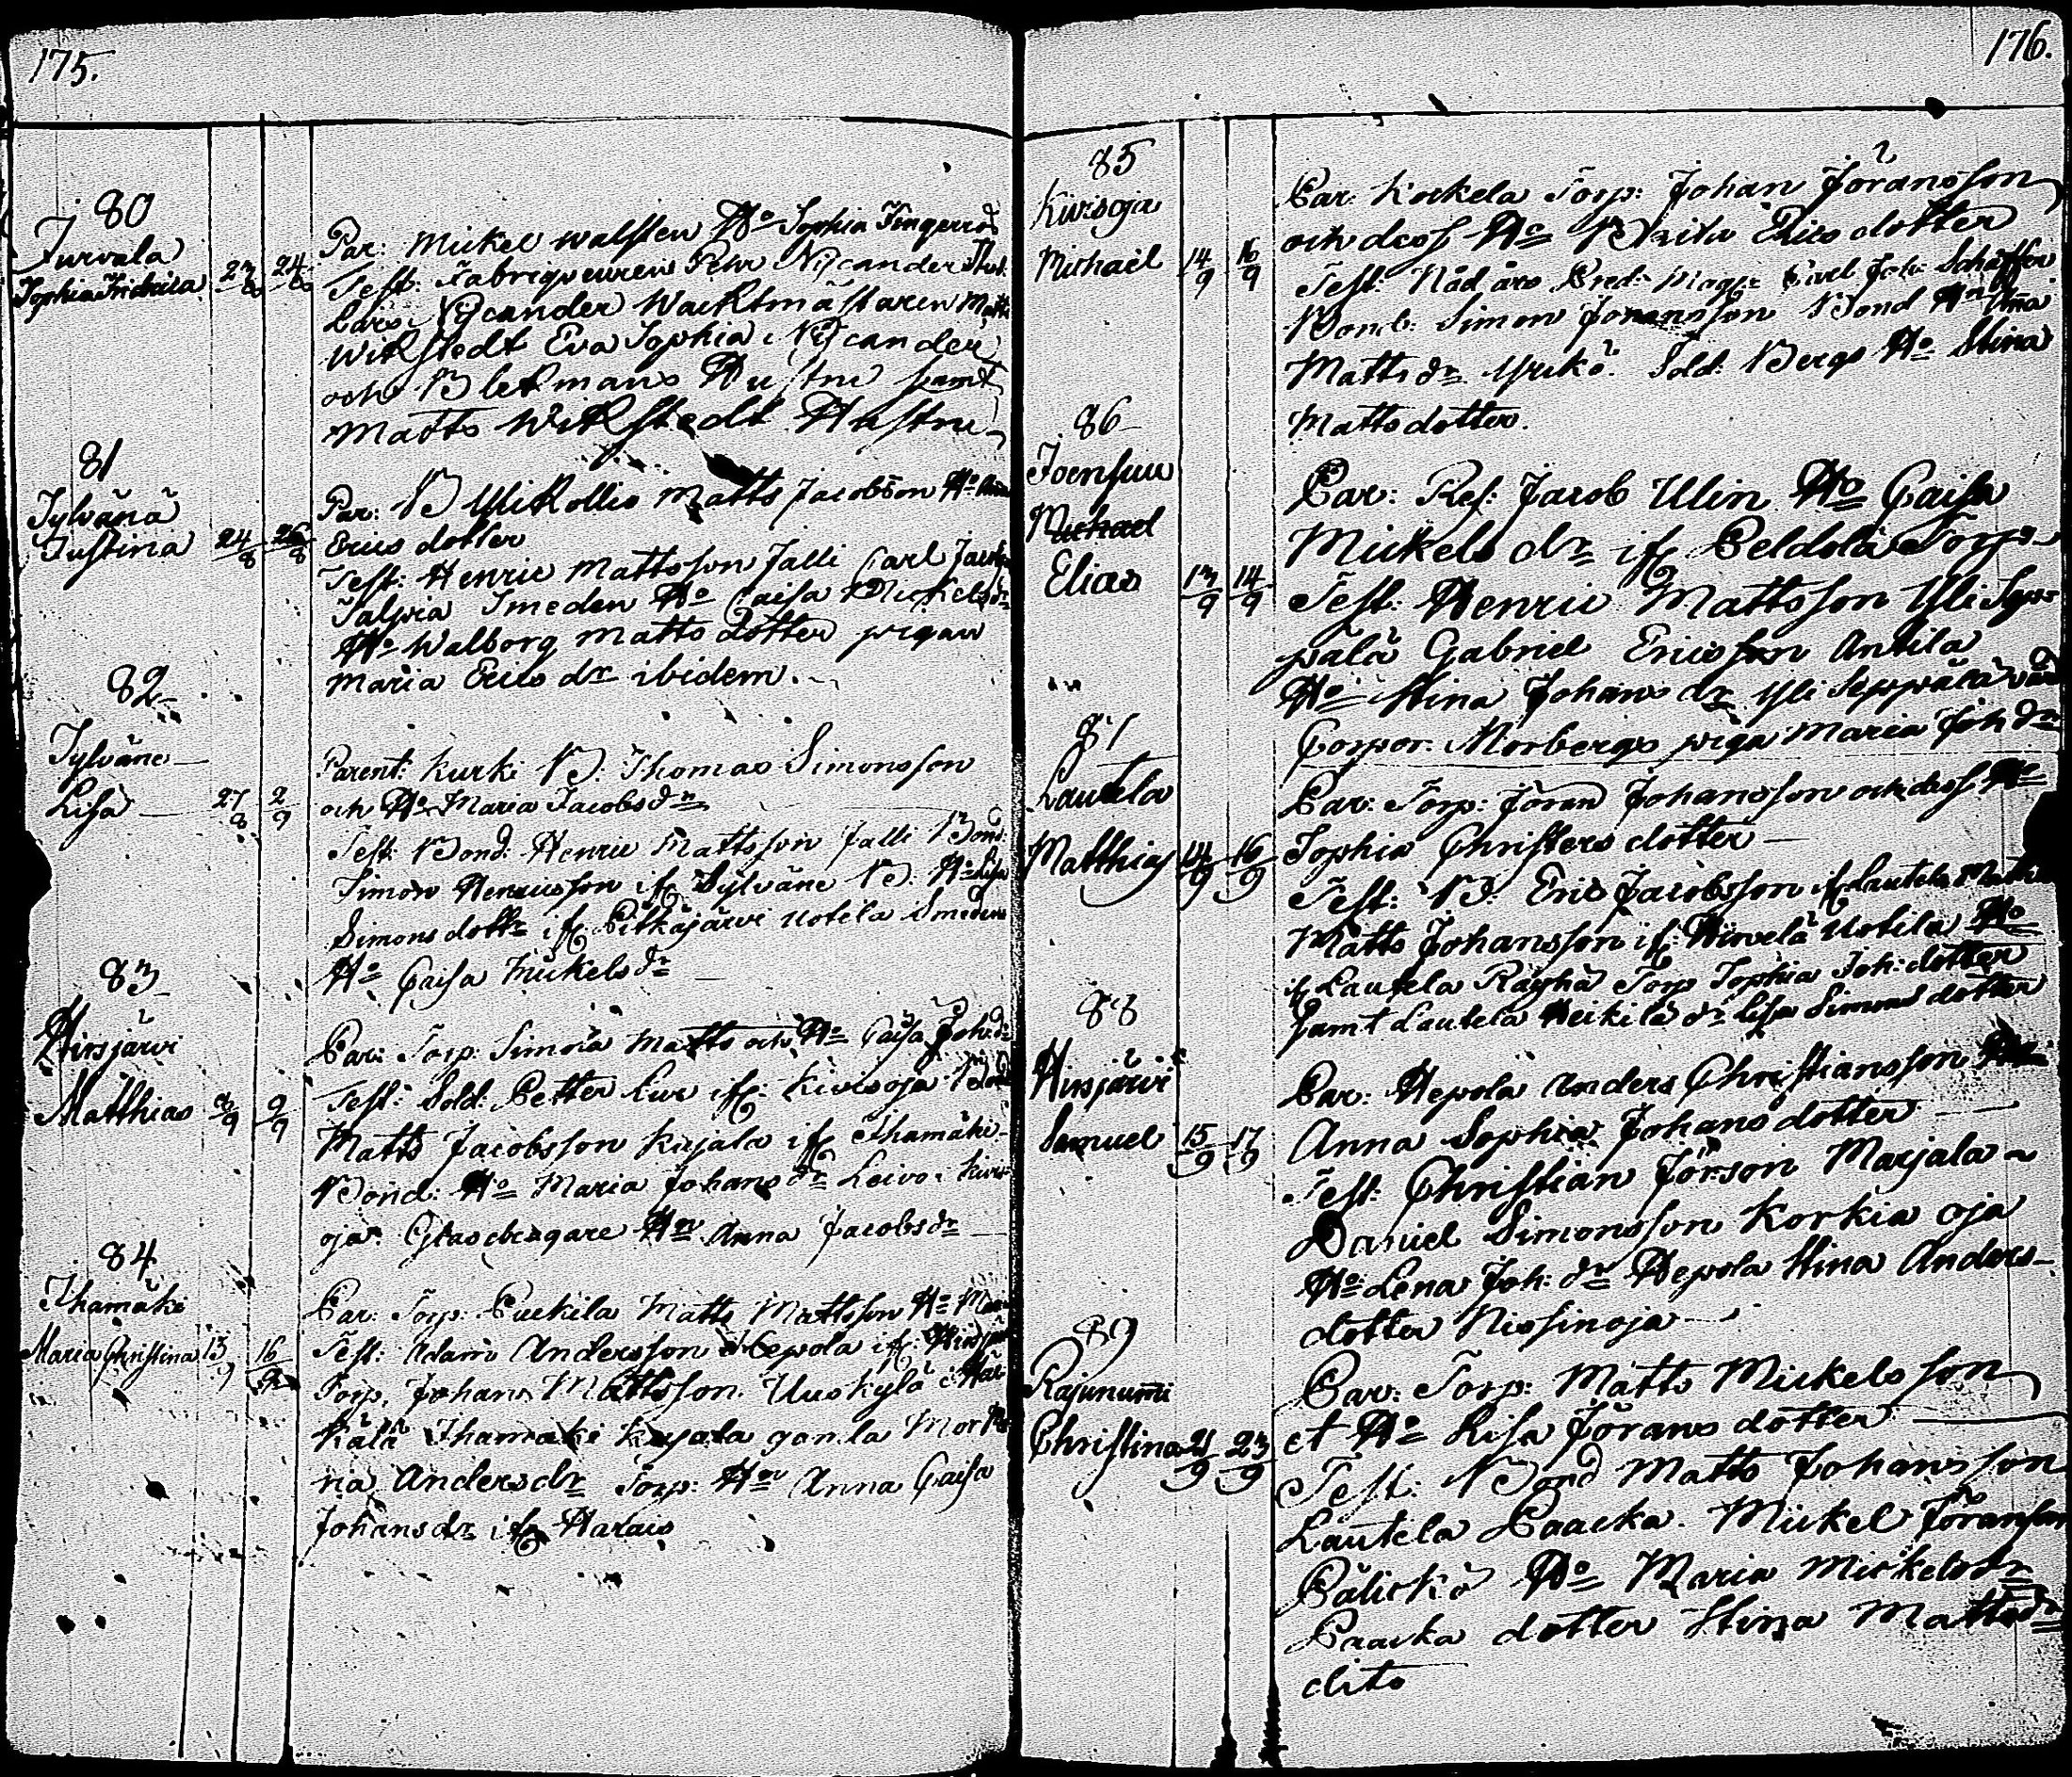 175.
80
Jurvala
Sophia Fridrica 23/8 24/8
Par: Mickel Walsten Ho Sophia
Test: Fabriqveuren Pehr Nycander
Lars Nycander Wacktmästaren Matts
Wikstedt Eva Sophia Nycander
och Blekmans Hustru samt
Matts Wikstedt Hustru
81
Sylvänä
Justina 24/8 26/8
Par: B Mikollis Matts Jacobsson Ho
Erics dotter
Test: Henric Mattsson Jalli Carl
Smeden Ho Caisa Mickels dr
Ho Walborg Matts dotter pigan
Maria Erics dr ibidem.
82
Sylväne
Lisa 27/8 2/9
Parent: Kurki B: Thomas Simonsson
och Ho Maria Jacobs dr
Test: Bond: Henric Mattsson Jalli Bond:
Simon Henricsson if Sylväne B: Ho Lisa
Simons dottr if Pitkäjärvi Uotila Smedens
Ho Caisa Mickels dr
83
Hirsjärvi
Matthias 9/9
Par: Torp: Simola Matts och Ho Caisa Joh: dr
Test: Sold: Petter Kur if: Kivisoja Bond
Matts Jacobsson Kujala if Ihamäki
Bond: Ho Maria Johans dr Leivo Kivis
oja Glasebergare Hn Anna Jacobs dr
84
Ihamäki
Maria Christina 13/9 16/9
Par: Torp: Puckila Matts Mattsson Ho
Test: Adam Andersson Hepola if:
Torp. Johan Mattsson Uuskylä i Här
kälä Ihamäki Kujala gamla Mor
na Anders dr Torp: Hn Anna Caisa
Johans dr if Harais
176.
85
Kivisoja
Michael 14/9 16/9
Par: Korkela Torp: Johan Jöransson
och dess Ho Brita Erics dotter
Test: Nåd års Pred: Mag: Carl Joh: Schäffer
Bond: Simon Joransson Bond Hn Ana
Matts dr Yrikö. Sold: Bergs Ho Stina
Matts dotter.
86
Joensuu
Michael
Elias 13/9 14/9
Par: Ref: Jacob Ulin Ho Caisa
Mickels dr if Peldola Torp
Test: Henric Mattsson Yli Sep
pälä Gabriel Ericsson Antila
Ho Stina Johans dr Yli Seppälä
Corpor: Norbergs piga Maria Joh dr
87
Lautela
Matthias 14/9 16/9
Par: Torp: Jöran Johansson och dess Ho
Sophia Christers dotter
Test: B: Eric Jacobsson if Lautela
Matts Johansson if: Hirvelä Uotila Ho
if Lautela Räyhä Torp Sophia Joh: dotter
samt Lautela Heikilä dr Lisa Simons dotter
88
Hirsjärvi
Samuel 15/9 17/9
Par: Hepola Anders Christiansson
Anna Sophia Johans dotter
Test: Christian Jörson Marjala
Daniel Simonsson Korkia oja
Ho: Lena Joh: dr Hepola Stina Anders
dotter Nissinoja
89
Rajunumi
Christina 21/9 23/9
Par: Torp: Matts Mickelsson
et Ho Lisa Jörans dotter
Test: Bond Matts Johansson
Lautela Paacka. Mickel Jöransson
Pälickö Ho Maria Mickels dr
Paacka dotter Stina Matts dr
dito